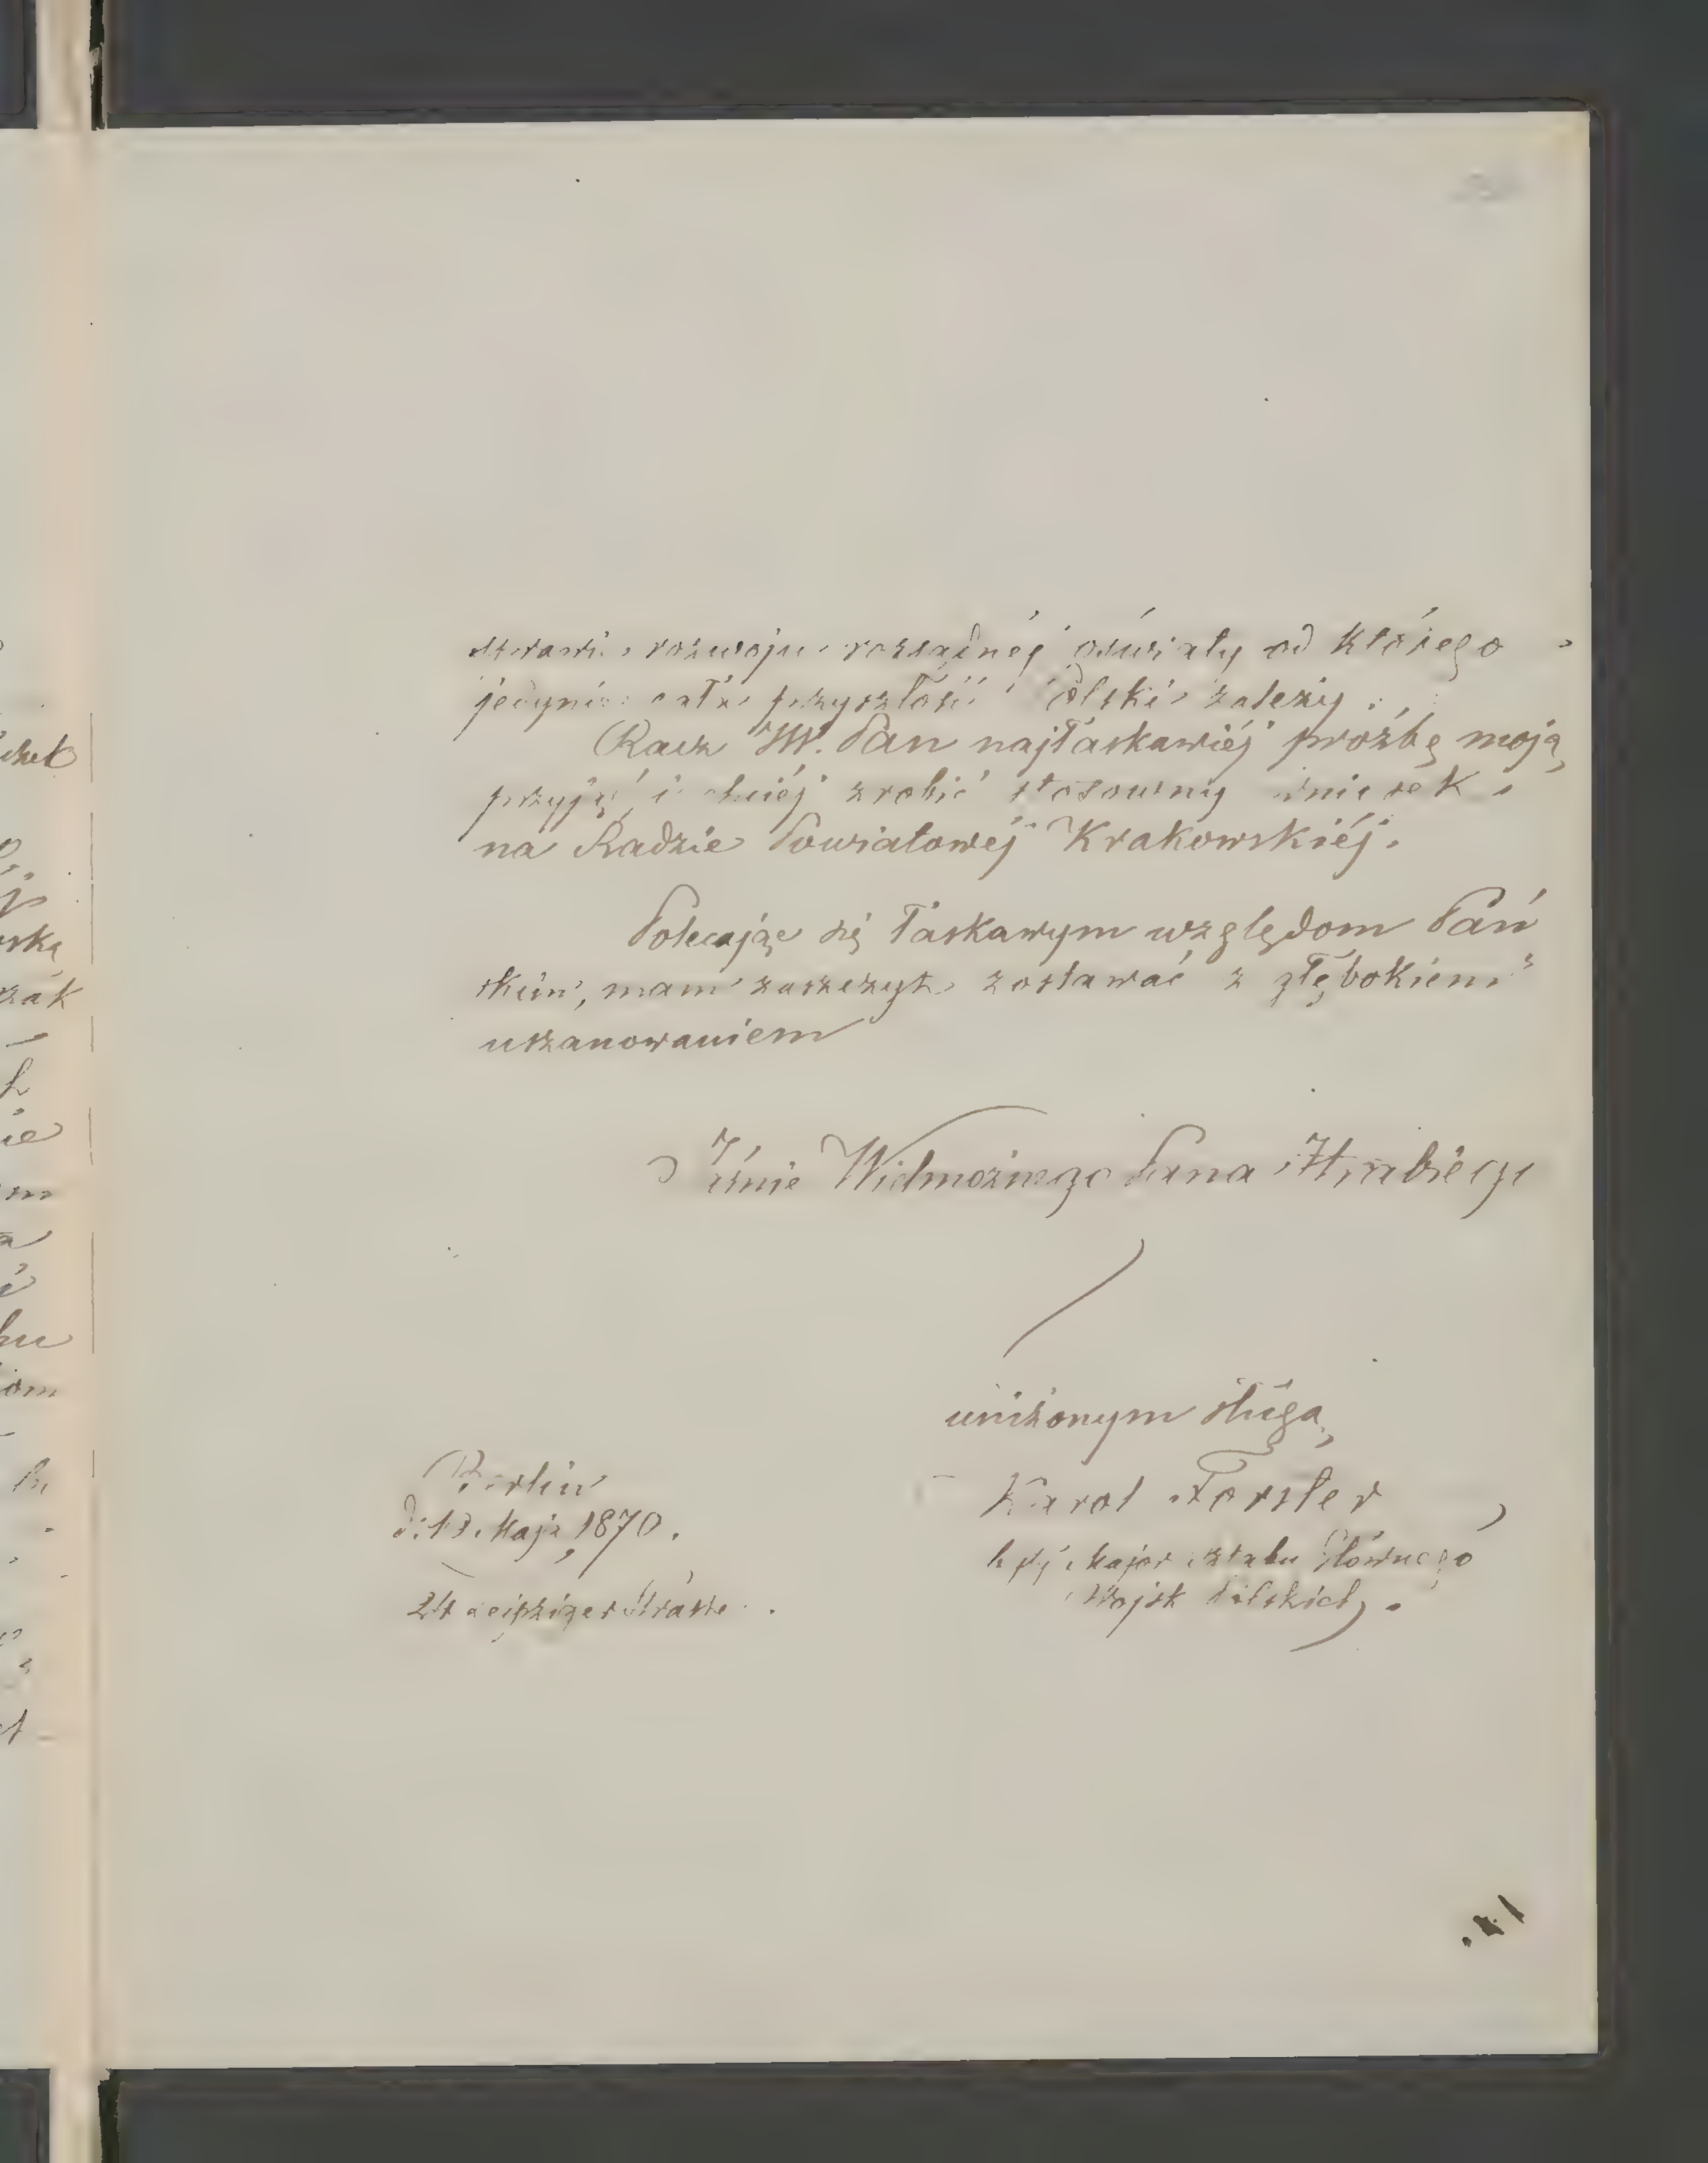 rozwoju rozsądnéj oświaty od którego
jedynie cała przyszłość Polski zależy.
Racz JW. Pan najłaskawiéj prośbę moją
przyjąć i chciéj zrobić stosowny wniosek
na Radzie Powiatowéj Krakowskiéj.
Polecając się łaskawym względom Pań
skim, mam zaszczyt zostawać z głębokiem
uszanowaniem
Jaśnie Wielmożnego Pana Hrabiego
uniżonym sługą
Karol Forster
Berlin
d. 13. Maja, 1870.
b. major sztabu Głównego
Wojsk Polskich.
24 Leipziger Strasse